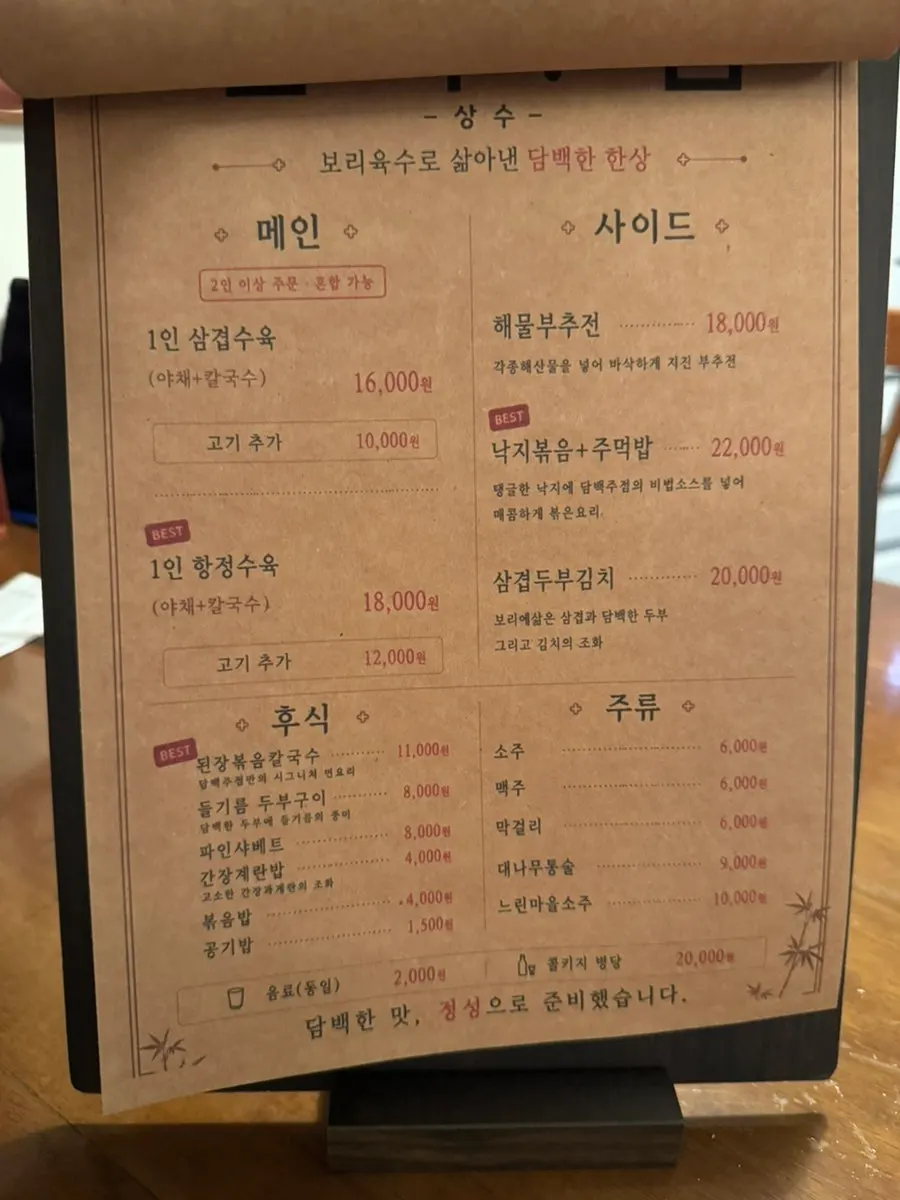 - 상수 -
보리육수로 삶아낸 담백한 한상
메인
2인 이상 주문 · 혼합 가능
1인 삼겹수육
(야채+칼국수) 16,000원
고기 추가 10,000원
BEST
1인 항정수육
(야채+칼국수) 18,000원
고기 추가 12,000원
사이드
해물부추전 18,000원
각종해산물을 넣어 바삭하게 지진 부추전
BEST
낙지볶음+주먹밥 22,000원
탱글한 낙지에 담백주점의 비법소스를 넣어
매콤하게 볶은요리
삼겹두부김치 20,000원
보리에삶은 삼겹과 담백한 두부
그리고 김치의 조화
후식
BEST
된장볶음칼국수 11,000원
담백주점만의 시그니처 면요리
들기름 두부구이 8,000원
담백한 두부에 들기름의 풍미
파인샤베트 8,000원
간장계란밥 4,000원
고소한 간장과계란의 조화
볶음밥 4,000원
공기밥 1,500원
주류
소주 6,000원
맥주 6,000원
막걸리 6,000원
대나무통술 9,000원
느린마을소주 10,000원
음료(통일) 2,000원
콜키지 병당 20,000원
담백한 맛, 정성으로 준비했습니다.